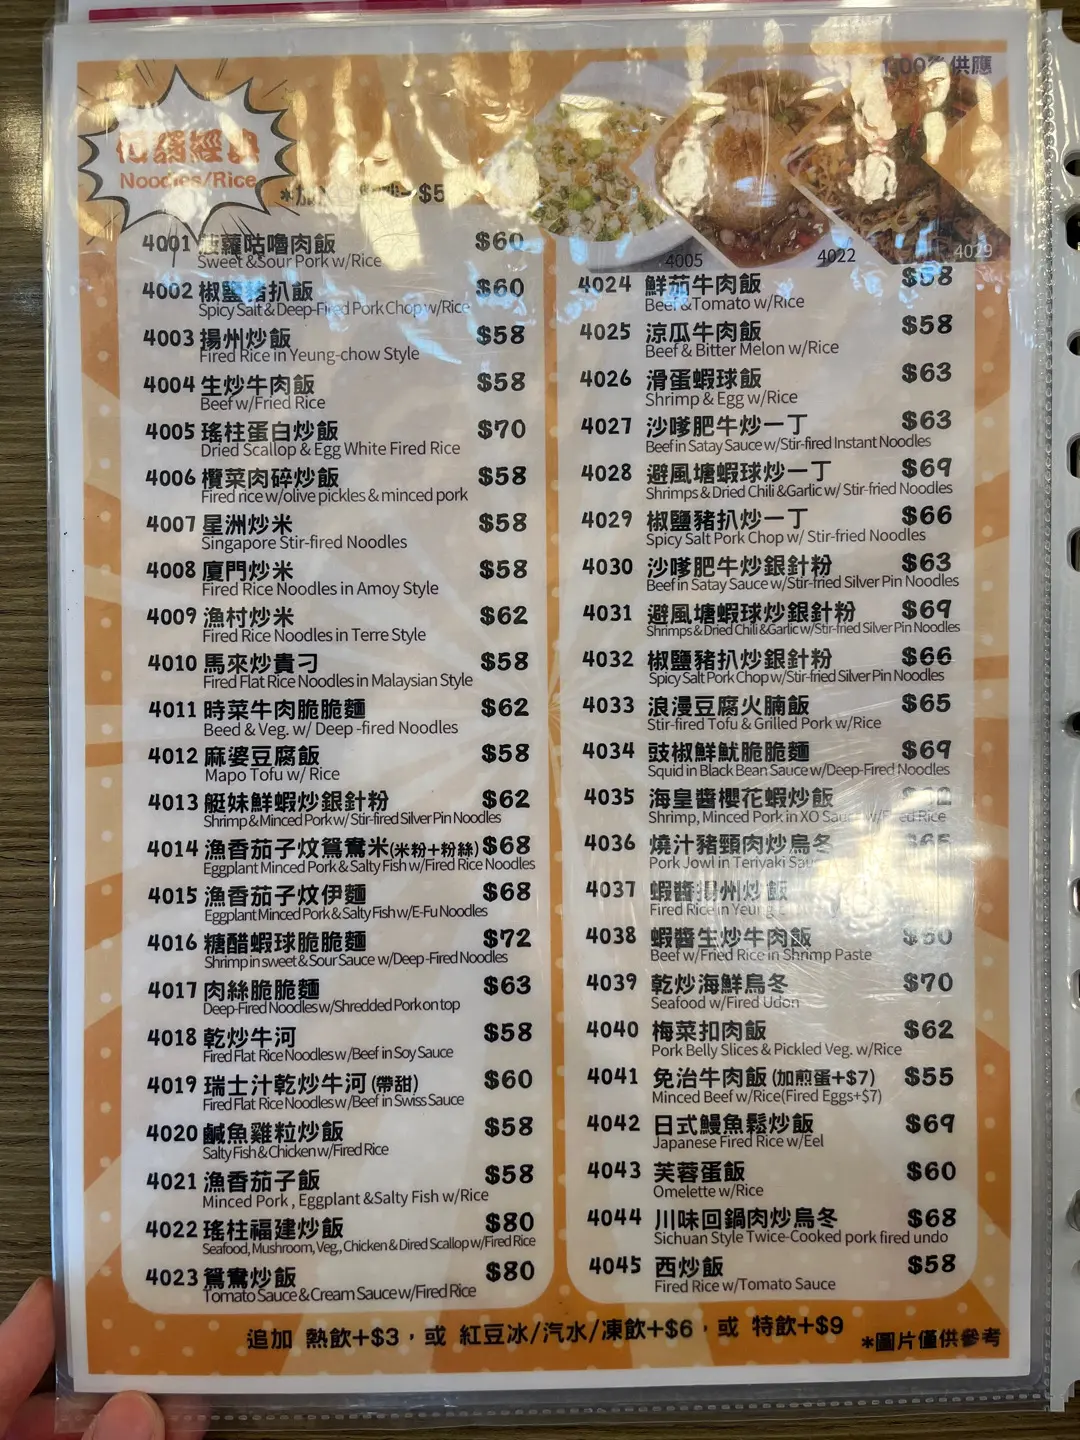 00後供應
鑊經典
Noodles/Rice
*加 $5
4005
4022
4029
4001 菠蘿咕嚕肉飯 $60
Sweet &Sour Pork w/Rice
4002 椒鹽豬扒飯 $60
Spicy Salt & Deep-Fired Pork Chop w/Rice
4003 揚州炒飯 $58
Fired Rice in Yeung-chow Style
4004 生炒牛肉飯 $58
Beef w/Fried Rice
4005 瑤柱蛋白炒飯 $70
Dried Scallop & Egg White Fired Rice
4006 欖菜肉碎炒飯 $58
Fired rice w/olive pickles & minced pork
4007 星洲炒米 $58
Singapore Stir-fired Noodles
4008 廈門炒米 $58
Fired Rice Noodles in Amoy Style
4009 漁村炒米 $62
Fired Rice Noodles in Terre Style
4010 馬來炒貴刁 $58
Fired Flat Rice Noodles in Malaysian Style
4011 時菜牛肉脆脆麵 $62
Beed & Veg. w/ Deep -fired Noodles
4012 麻婆豆腐飯 $58
Mapo Tofu w/ Rice
4013 艇妹鮮蝦炒銀針粉 $62
Shrimp & Minced Pork w/ Stir-fired Silver Pin Noodles
4014 漁香茄子炆鴛鴦米(米粉+粉絲) $68
Eggplant Minced Pork & Salty Fish w/Fired Rice Noodles
4015 漁香茄子炆伊麵 $68
Eggplant Minced Pork & Salty Fish w/E-Fu Noodles
4016 糖醋蝦球脆脆麵 $72
Shrimp in sweet & Sour Sauce w/Deep -Fired Noodles
4017 肉絲脆脆麵 $63
Deep-Fired Noodles w/Shredded Pork on top
4018 乾炒牛河 $58
Fired Flat Rice Noodles w/Beef in Soy Sauce
4019 瑞士汁乾炒牛河 (帶甜) $60
Fired Flat Rice Noodles w/Beef in Swiss Sauce
4020 鹹魚雞粒炒飯 $58
Salty Fish & Chicken w/Fired Rice
4021 漁香茄子飯 $58
Minced Pork , Eggplant &Salty Fish w/Rice
4022 瑤柱福建炒飯 $80
Seafood, Mushroom, Veg., Chicken & Dired Scallop w/Fired Rice
4023 鴛鴦炒飯 $80
Tomato Sauce & Cream Sauce w/Fired Rice
4024 鮮茄牛肉飯 $58
Beef &Tomato w/Rice
4025 涼瓜牛肉飯 $58
Beef & Bitter Melon w/Rice
4026 滑蛋蝦球飯 $63
Shrimp & Egg w/Rice
4027 沙嗲肥牛炒一丁 $63
Beef in Satay Sauce w/Stir-fired Instant Noodles
4028 避風塘蝦球炒一丁 $69
Shrimps & Dried Chili &Garlic w/ Stir-fried Noodles
4029 椒鹽豬扒炒一丁 $66
Spicy Salt Pork Chop w/ Stir-fried Noodles
4030 沙嗲肥牛炒銀針粉 $63
Beef in Satay Sauce w/Stir-fried Silver Pin Noodles
4031 避風塘蝦球炒銀針粉 $69
Shrimps & Dried Chili &Garlic w/Stir-fried Silver Pin Noodles
4032 椒鹽豬扒炒銀針粉 $66
Spicy Salt Pork Chop w/Stir-fried Silver Pin Noodles
4033 浪漫豆腐火腩飯 $65
Stir-fired Tofu & Grilled Pork w/Rice
4034 豉椒鮮魷脆脆麵 $69
Squid in Black Bean Sauce w/Deep-Fired Noodles
4035 海皇醬櫻花蝦炒飯
Shrimp, Minced Pork in XO Sauce w/Fired Rice
4036 燒汁豬頸肉炒烏冬 $65
Pork Jowl in Teriyaki
4037 蝦醬揚州炒飯
Fired Rice in Yeung
4038 蝦醬生炒牛肉飯 $60
Beef w/Fried Rice in Shrimp Paste
4039 乾炒海鮮烏冬 $70
Seafood w/Fired Udon
4040 梅菜扣肉飯 $62
Pork Belly Slices & Pickled Veg. w/Rice
4041 免治牛肉飯 (加煎蛋+$7) $55
Minced Beef w/Rice(Fired Eggs+$7)
4042 日式鰻魚鬆炒飯 $69
Japanese Fired Rice w/Eel
4043 芙蓉蛋飯 $60
Omelette w/Rice
4044 川味回鍋肉炒烏冬 $68
Sichuan Style Twice-Cooked pork fired undo
4045 西炒飯 $58
Fired Rice w/Tomato Sauce
追加 熱飲+$3，或 紅豆冰/汽水/凍飲+$6，或 特飲+$9
*圖片僅供參考